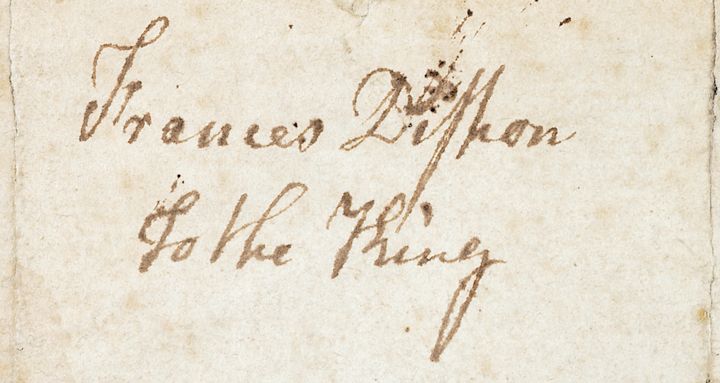 Frances Dishon
To the King